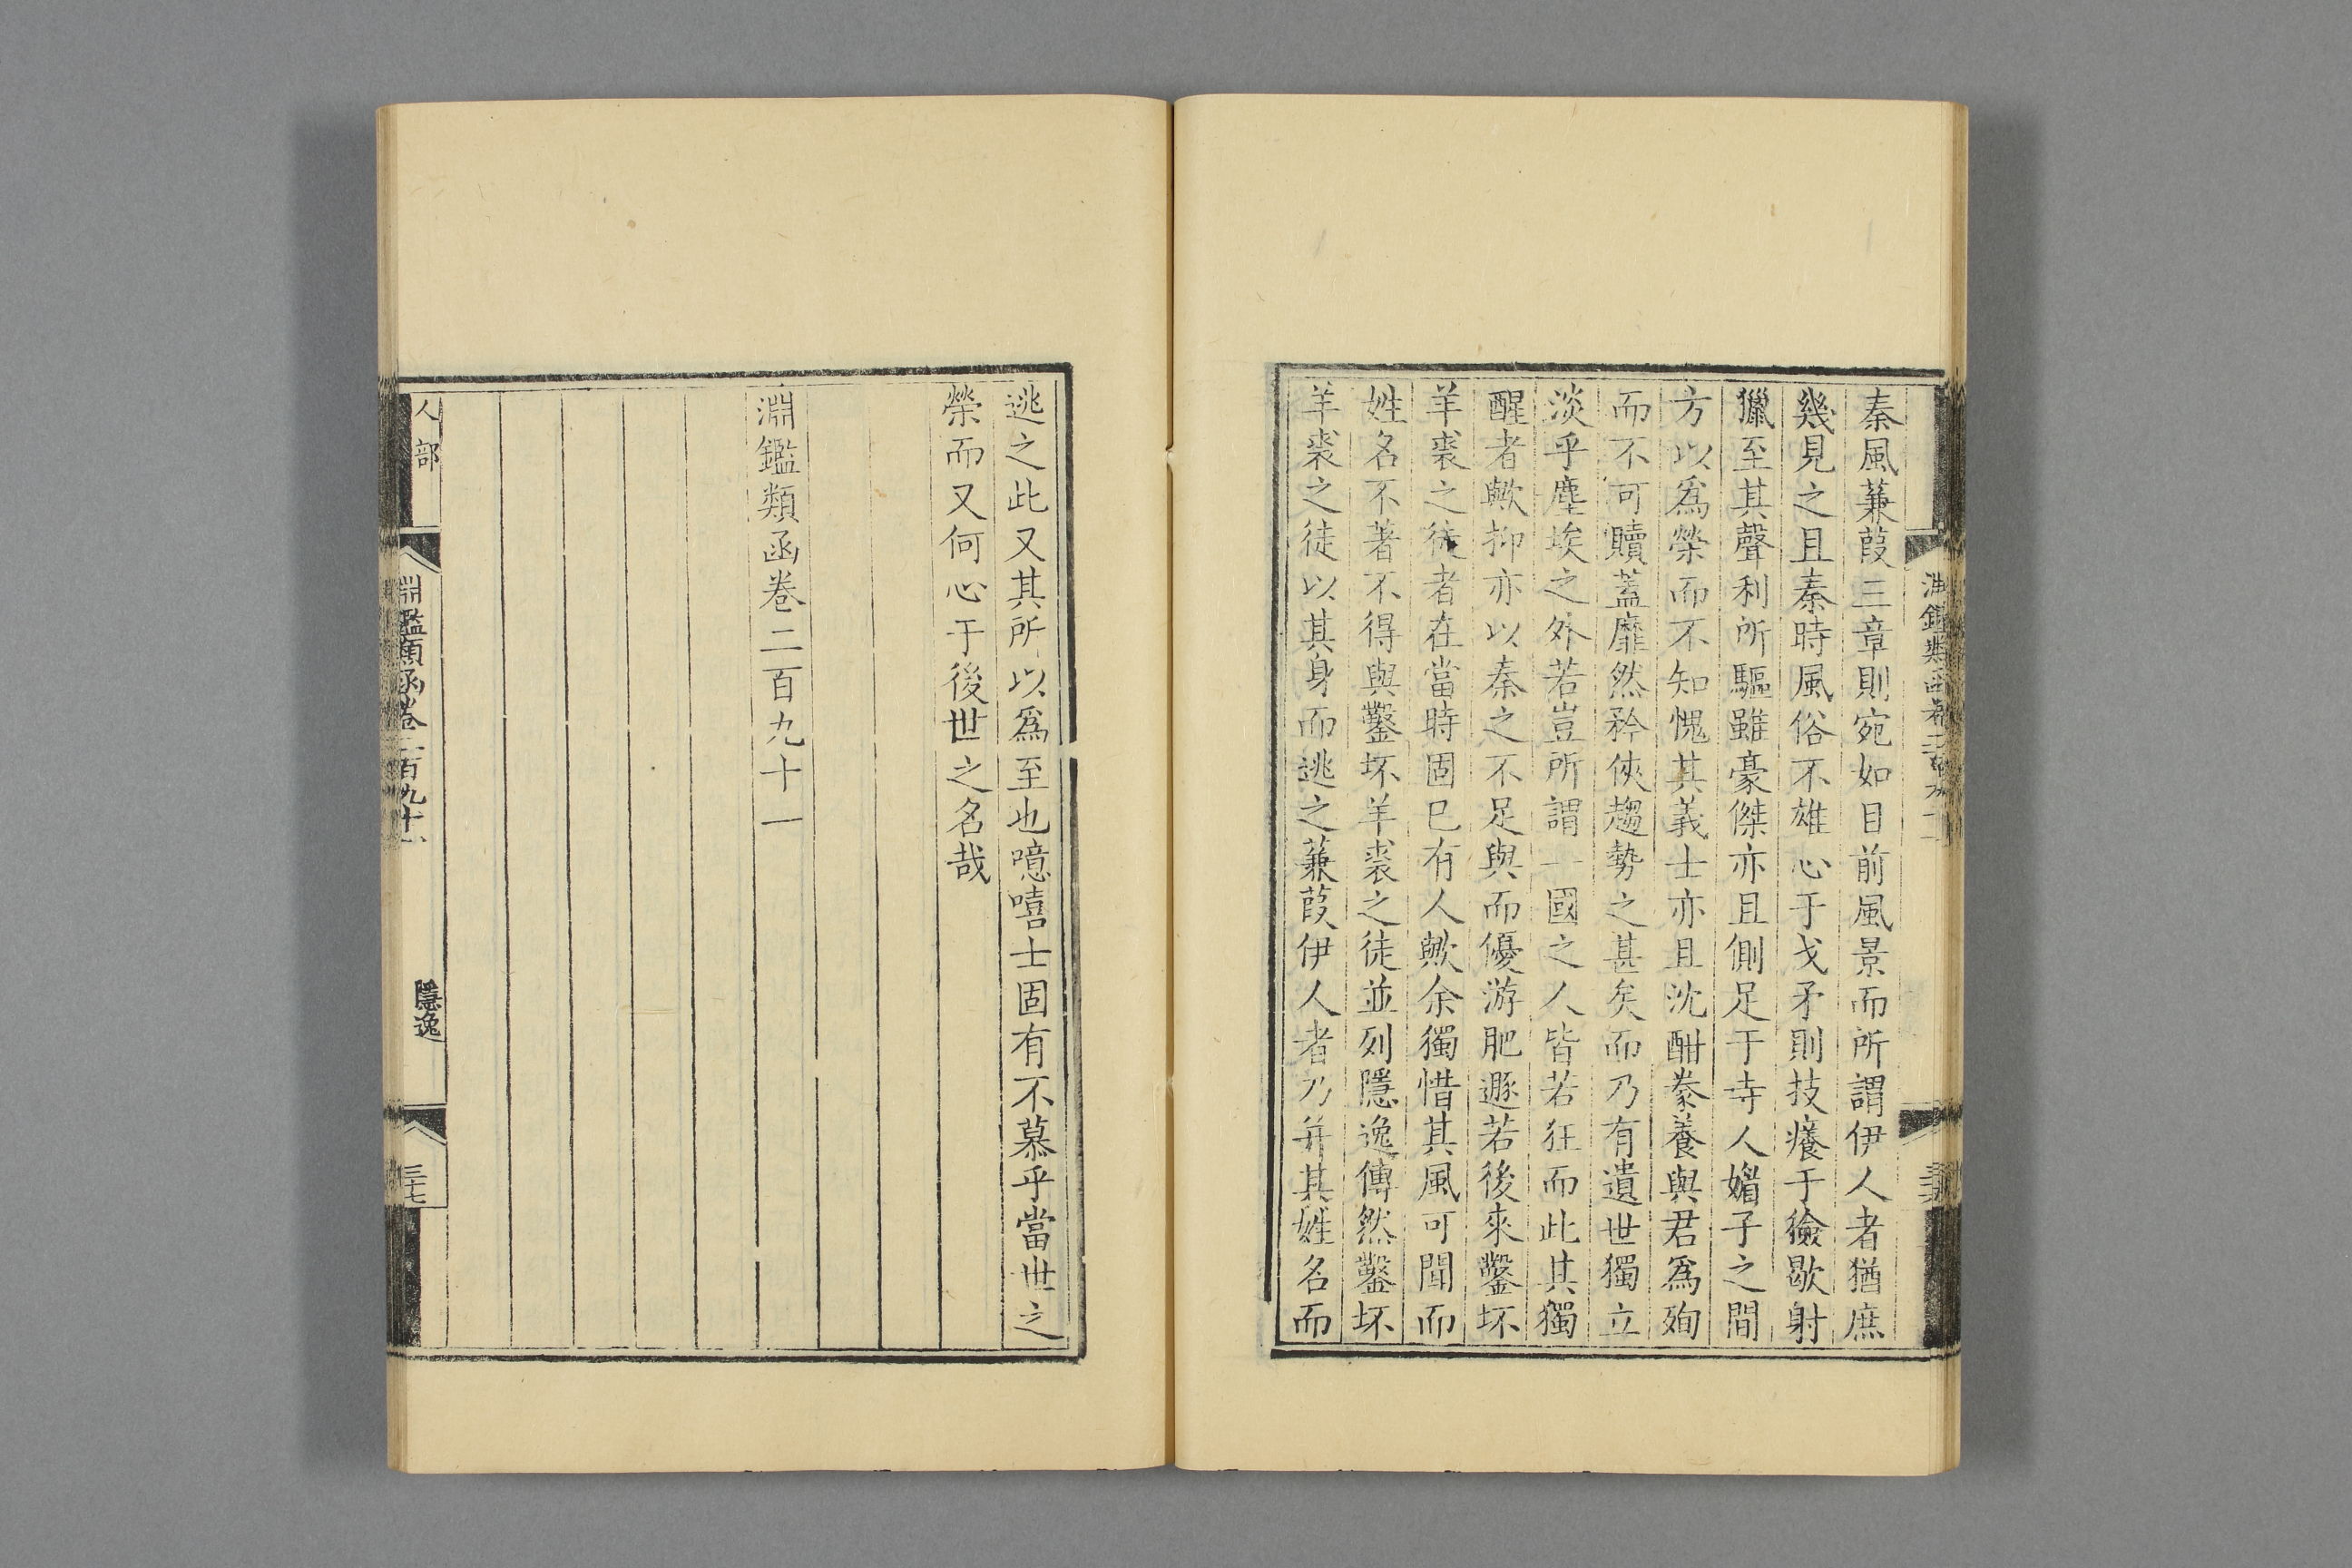 秦風蒹葭三章則宛如目前風景而所謂伊人者猶庶
幾見之且秦時風俗不雄心于戈矛則技癢于獫歇射
獵至其聲利所驅雖豪傑亦且側足于寺人媚子之間
方以爲榮而不知愧其義士亦且沈酣豢養與君爲殉
而不可贖蓋靡然矜俠趨勢之甚矣而乃有遺世獨立
淡乎塵埃之外若豈所謂一國之人皆若狂而此其獨
醒者歟抑亦以秦之不足與而優游肥遯若後來鑿坏
羊裘之徒者在當時固已有人歟余獨惜其風可聞而
姓名不著不得與鑿坏羊裘之徒並列隱逸傳然鑿坏
羊裘之徒以其身而逃之蒹葭伊人者乃并其姓名而
逃之此又其所以爲至也噫嘻士固有不慕乎當世之
榮而又何心于後世之名哉
淵鑑類函卷二百九十一
人部
淵鑑類函卷二百九十一
隱逸
三十七